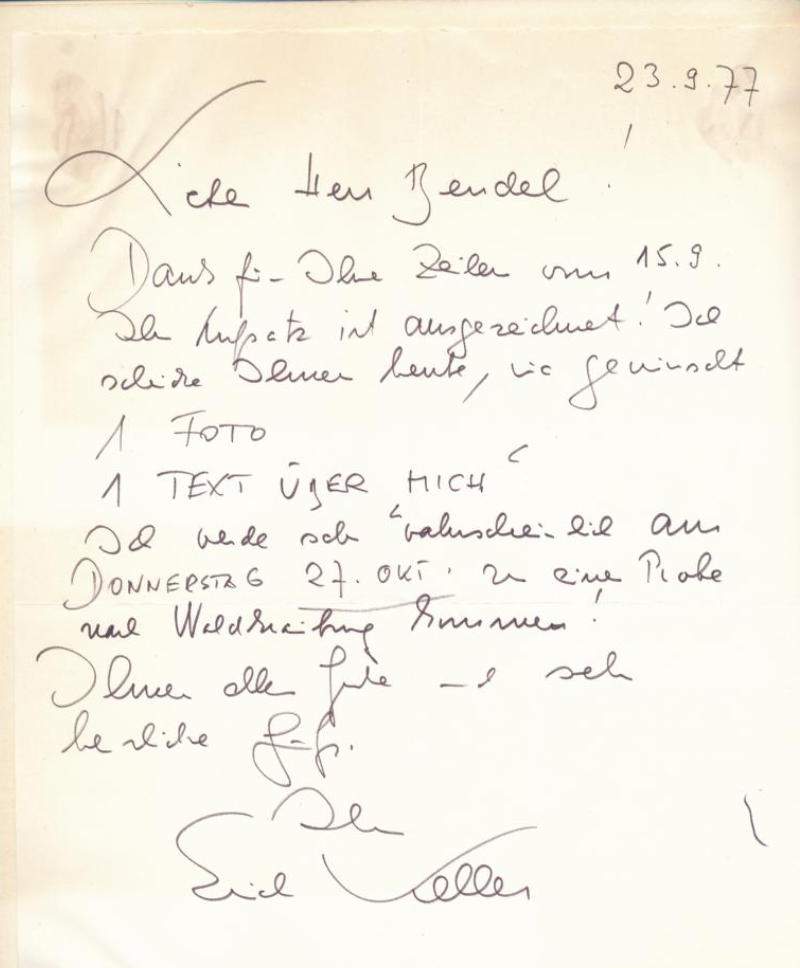 23.9.77
Lieber Herr Bendel!
Dank für Ihre Zeilen vom 15.9.
Ihr Aufsatz ist ausgezeichnet! Ich
schicke Ihnen heute, wie gewünscht
1 FOTO
1 TEXT ÜBER MICH
Ich werde sehr wahrscheinlich am
DONNERSTAG 27. OKT. zu einer Probe
nach Waldkraiburg kommen!
Ihnen alles Gute und sehr
herzliche Grüße.
Ihr
Erich